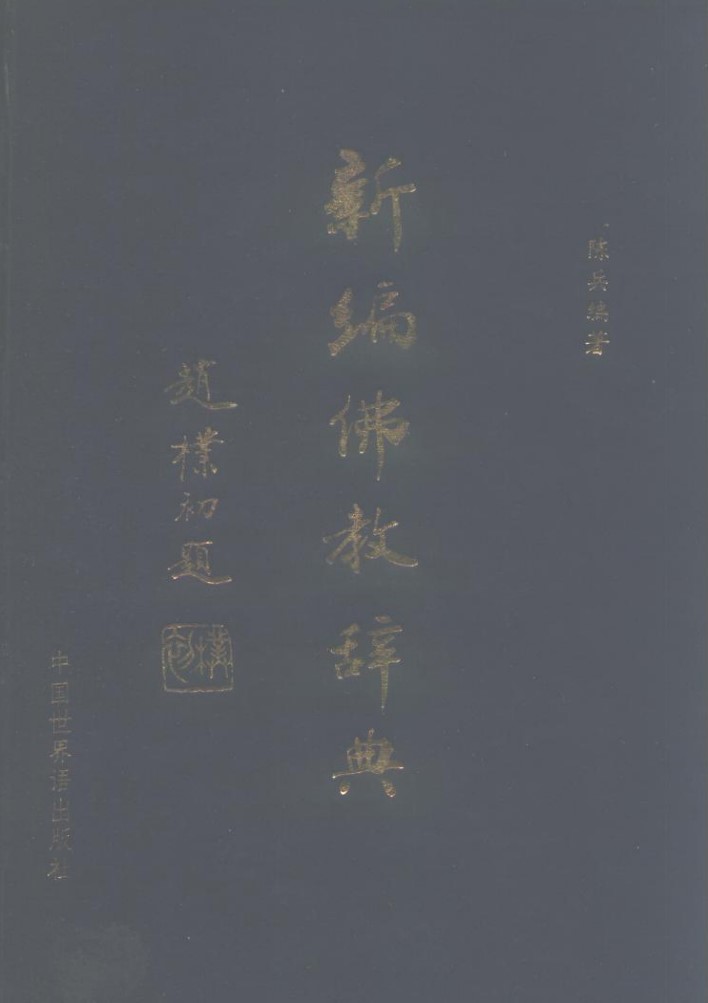 陈兵编著
新编佛教辞典
趙樸初題
樸初
中国世界语出版社